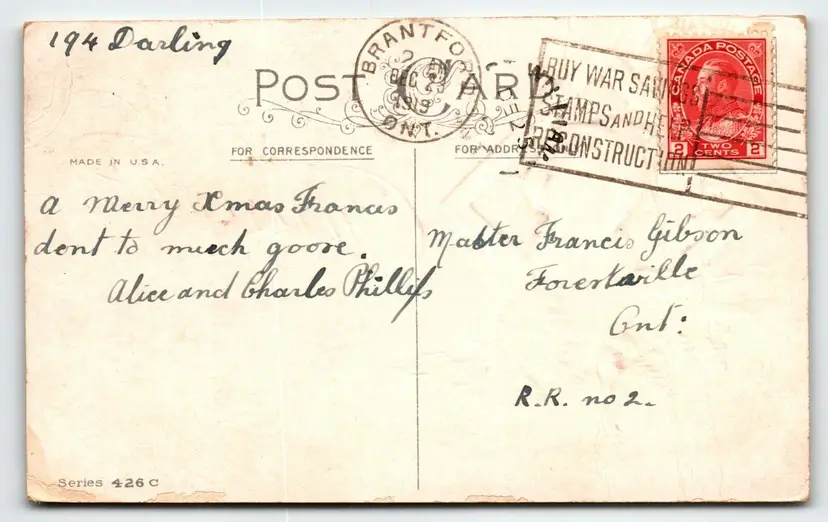 194 Darling
POST CARD
BRANTFORD
2
DEC 23
1918
ONT.
BUY WAR SAVINGS
STAMPS AND HELP
RECONSTRUCTION
CANADA POSTAGE
2 TWO CENTS 2
MADE IN U.S.A.
FOR CORRESPONDENCE
FOR ADDRESS ONLY
A Merry Xmas Francis
dont to much goose.
Alice and Charles Phillips
Master Francis Gibson
Forestville
Ont:
R.R. no 2.
Series 426 C